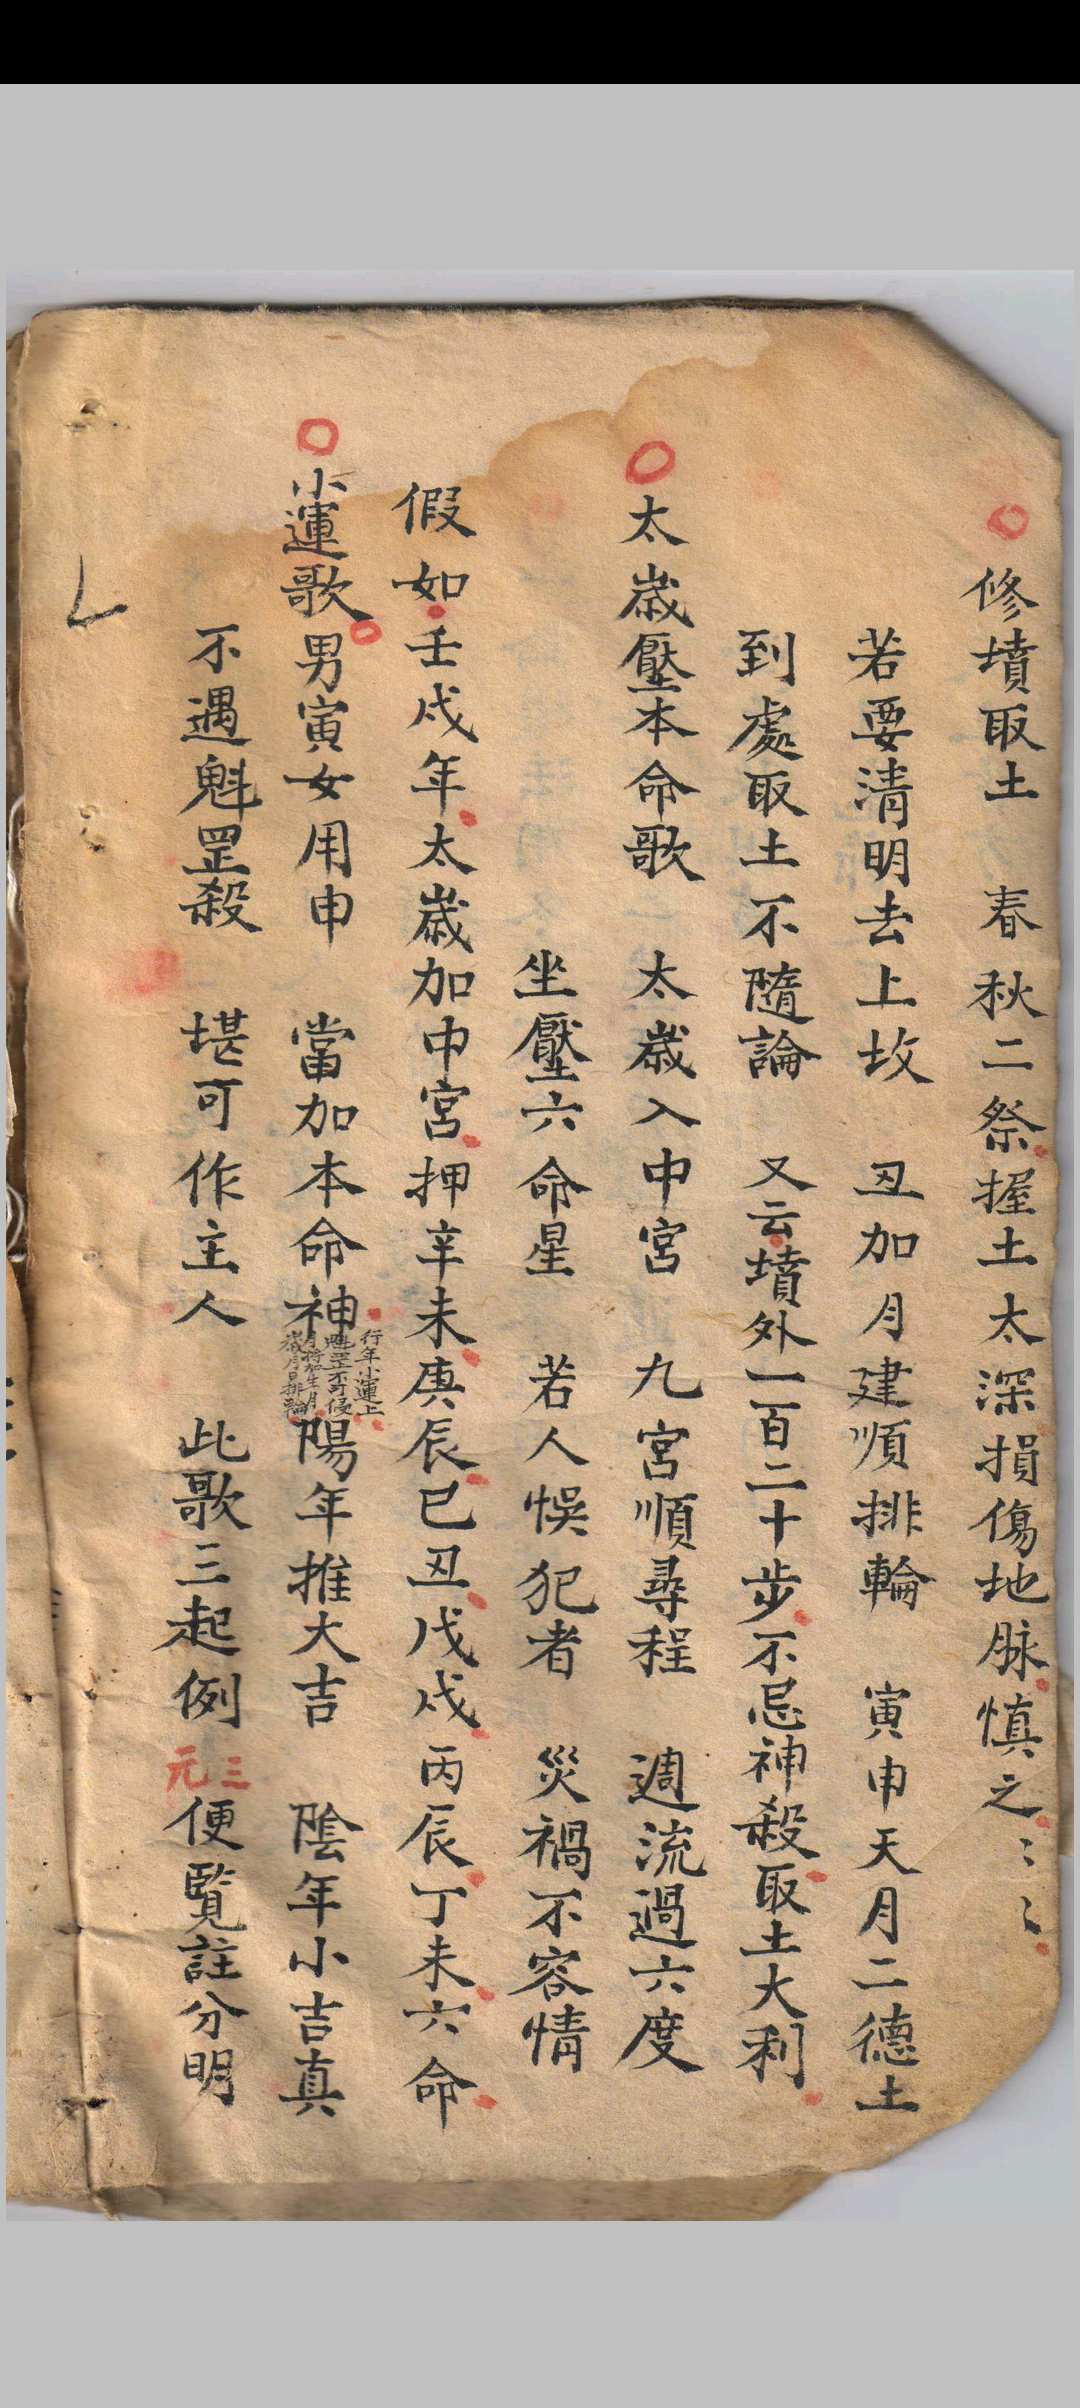 修墳取土　春秋二祭握土太深損傷地脉慎之〻〻
若要清明去上坟　丑加月建順排輪　寅申天月二德土
到處取土不隨論　又云墳外一百二十步不忌神殺取土大利
太歲壓本命歌　太歲入中宮　九宮順尋程　週流過六度
坐壓六命星　若人悞犯者　災禍不容情
假如壬戌年太歲加中宮押辛未庚辰己丑戊戌丙辰丁未六命
小運歌男寅女用申　當加本命神
行年小運上
魁罡不可侵
月將加生月
歲月是排論
陽年推大吉　陰年小吉真
不遇魁罡殺　堪可作主人　此歌三起例三元便覽註分明